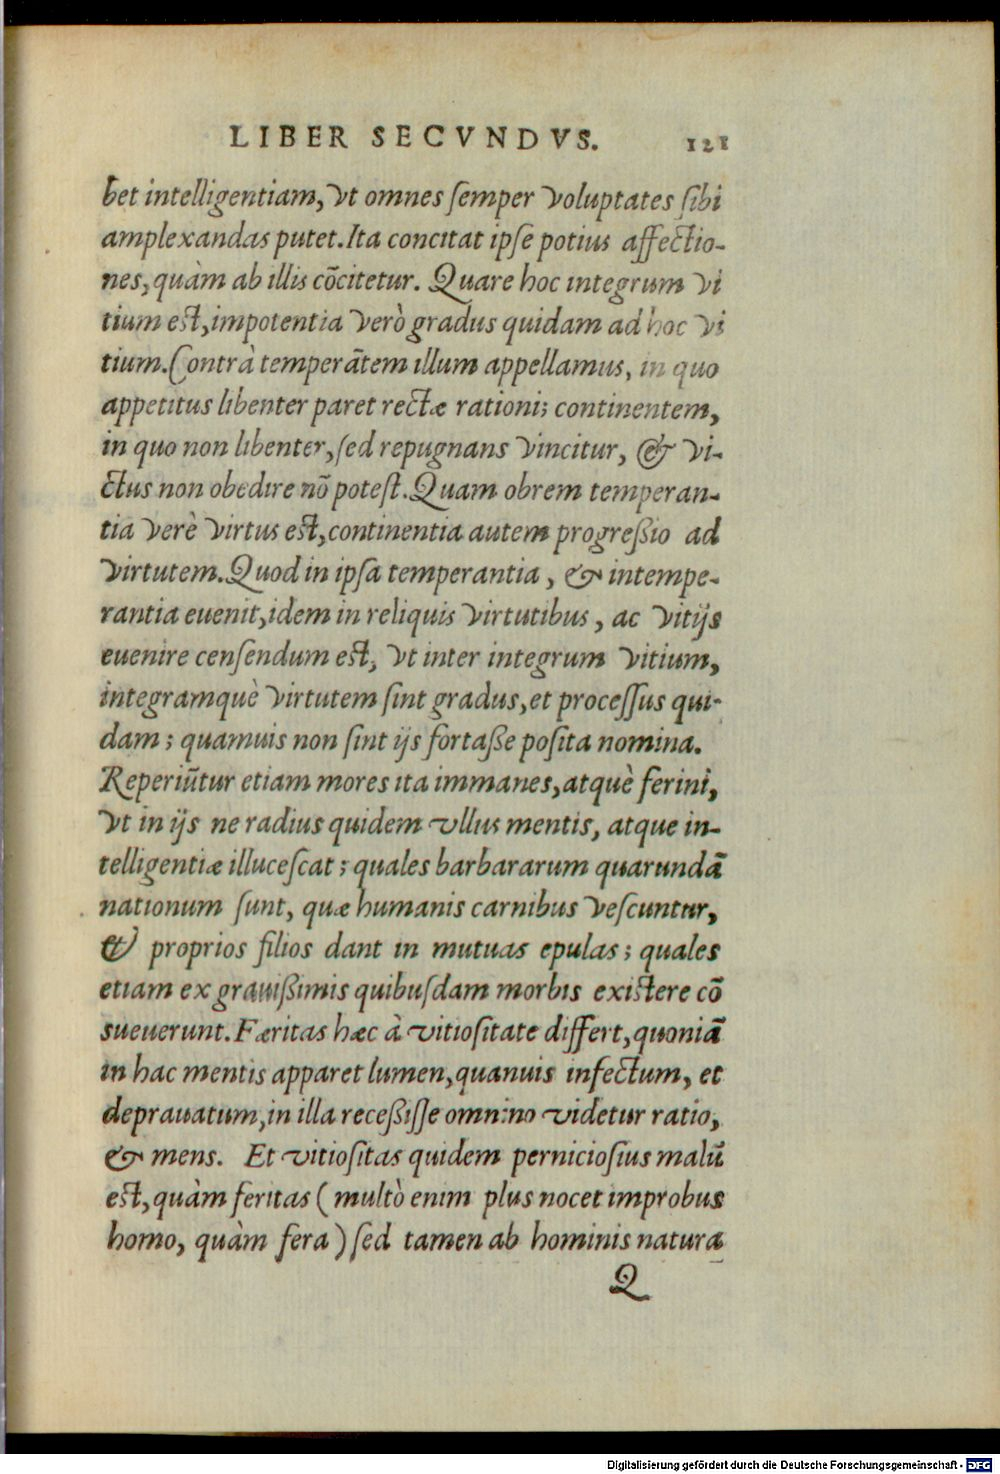 LIBER SECVNDVS. 121
bet intelligentiam, vt omnes ſemper voluptates ſibi
amplexandas putet. Ita concitat ipſe potius affectio-
nes, quàm ab illis cōcitetur. Quare hoc integrum vi
tium est, impotentia verò gradus quidam ad hoc vi
tium. Contrà temperātem illum appellamus, in quo
appetitus libenter paret rectæ rationi; continentem,
in quo non libenter, ſed repugnans vincitur, & vi-
ctus non obedire nō poteſt. Quam obrem temperan-
tia verè virtus est, continentia autem progreßio ad
virtutem. Quod in ipſa temperantia, & intempe-
rantia euenit, idem in reliquis virtutibus, ac vitijs
euenire cenſendum est, vt inter integrum vitium,
integramquè virtutem ſint gradus, et proceſſus qui-
dam; quamuis non ſint ijs fortaße poſita nomina.
Reperiūtur etiam mores ita immanes, atquè ferini,
vt in ijs ne radius quidem vllus mentis, atque in-
telligentiæ illuceſcat; quales barbararum quarundā
nationum ſunt, quæ humanis carnibus veſcuntur,
& proprios filios dant in mutuas epulas; quales
etiam ex grauißimis quibuſdam morbis existere cō
sueuerunt. Færitas hæc à vitioſitate differt, quoniā
in hac mentis apparet lumen, quanuis infectum, et
deprauatum, in illa receßiſſe omnino videtur ratio,
& mens. Et vitioſitas quidem pernicioſius malū
est, quàm feritas (multò enim plus nocet improbus
homo, quàm fera) ſed tamen ab hominis natura
Q
Digitalisierung gefördert durch die Deutsche Forschungsgemeinschaft - DFG